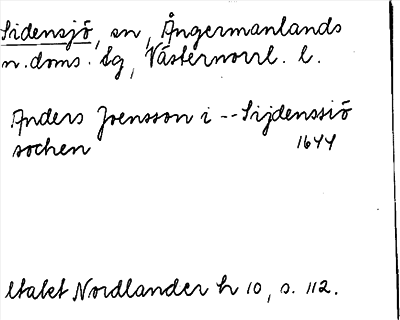 Sidensjö, sn, Ångermanlands
n. doms. sg, Västernorrl. l.
Anders Joensson i -- Sijdenssiö
sochen 1644
Utakt Nordlander h 10, s. 112.